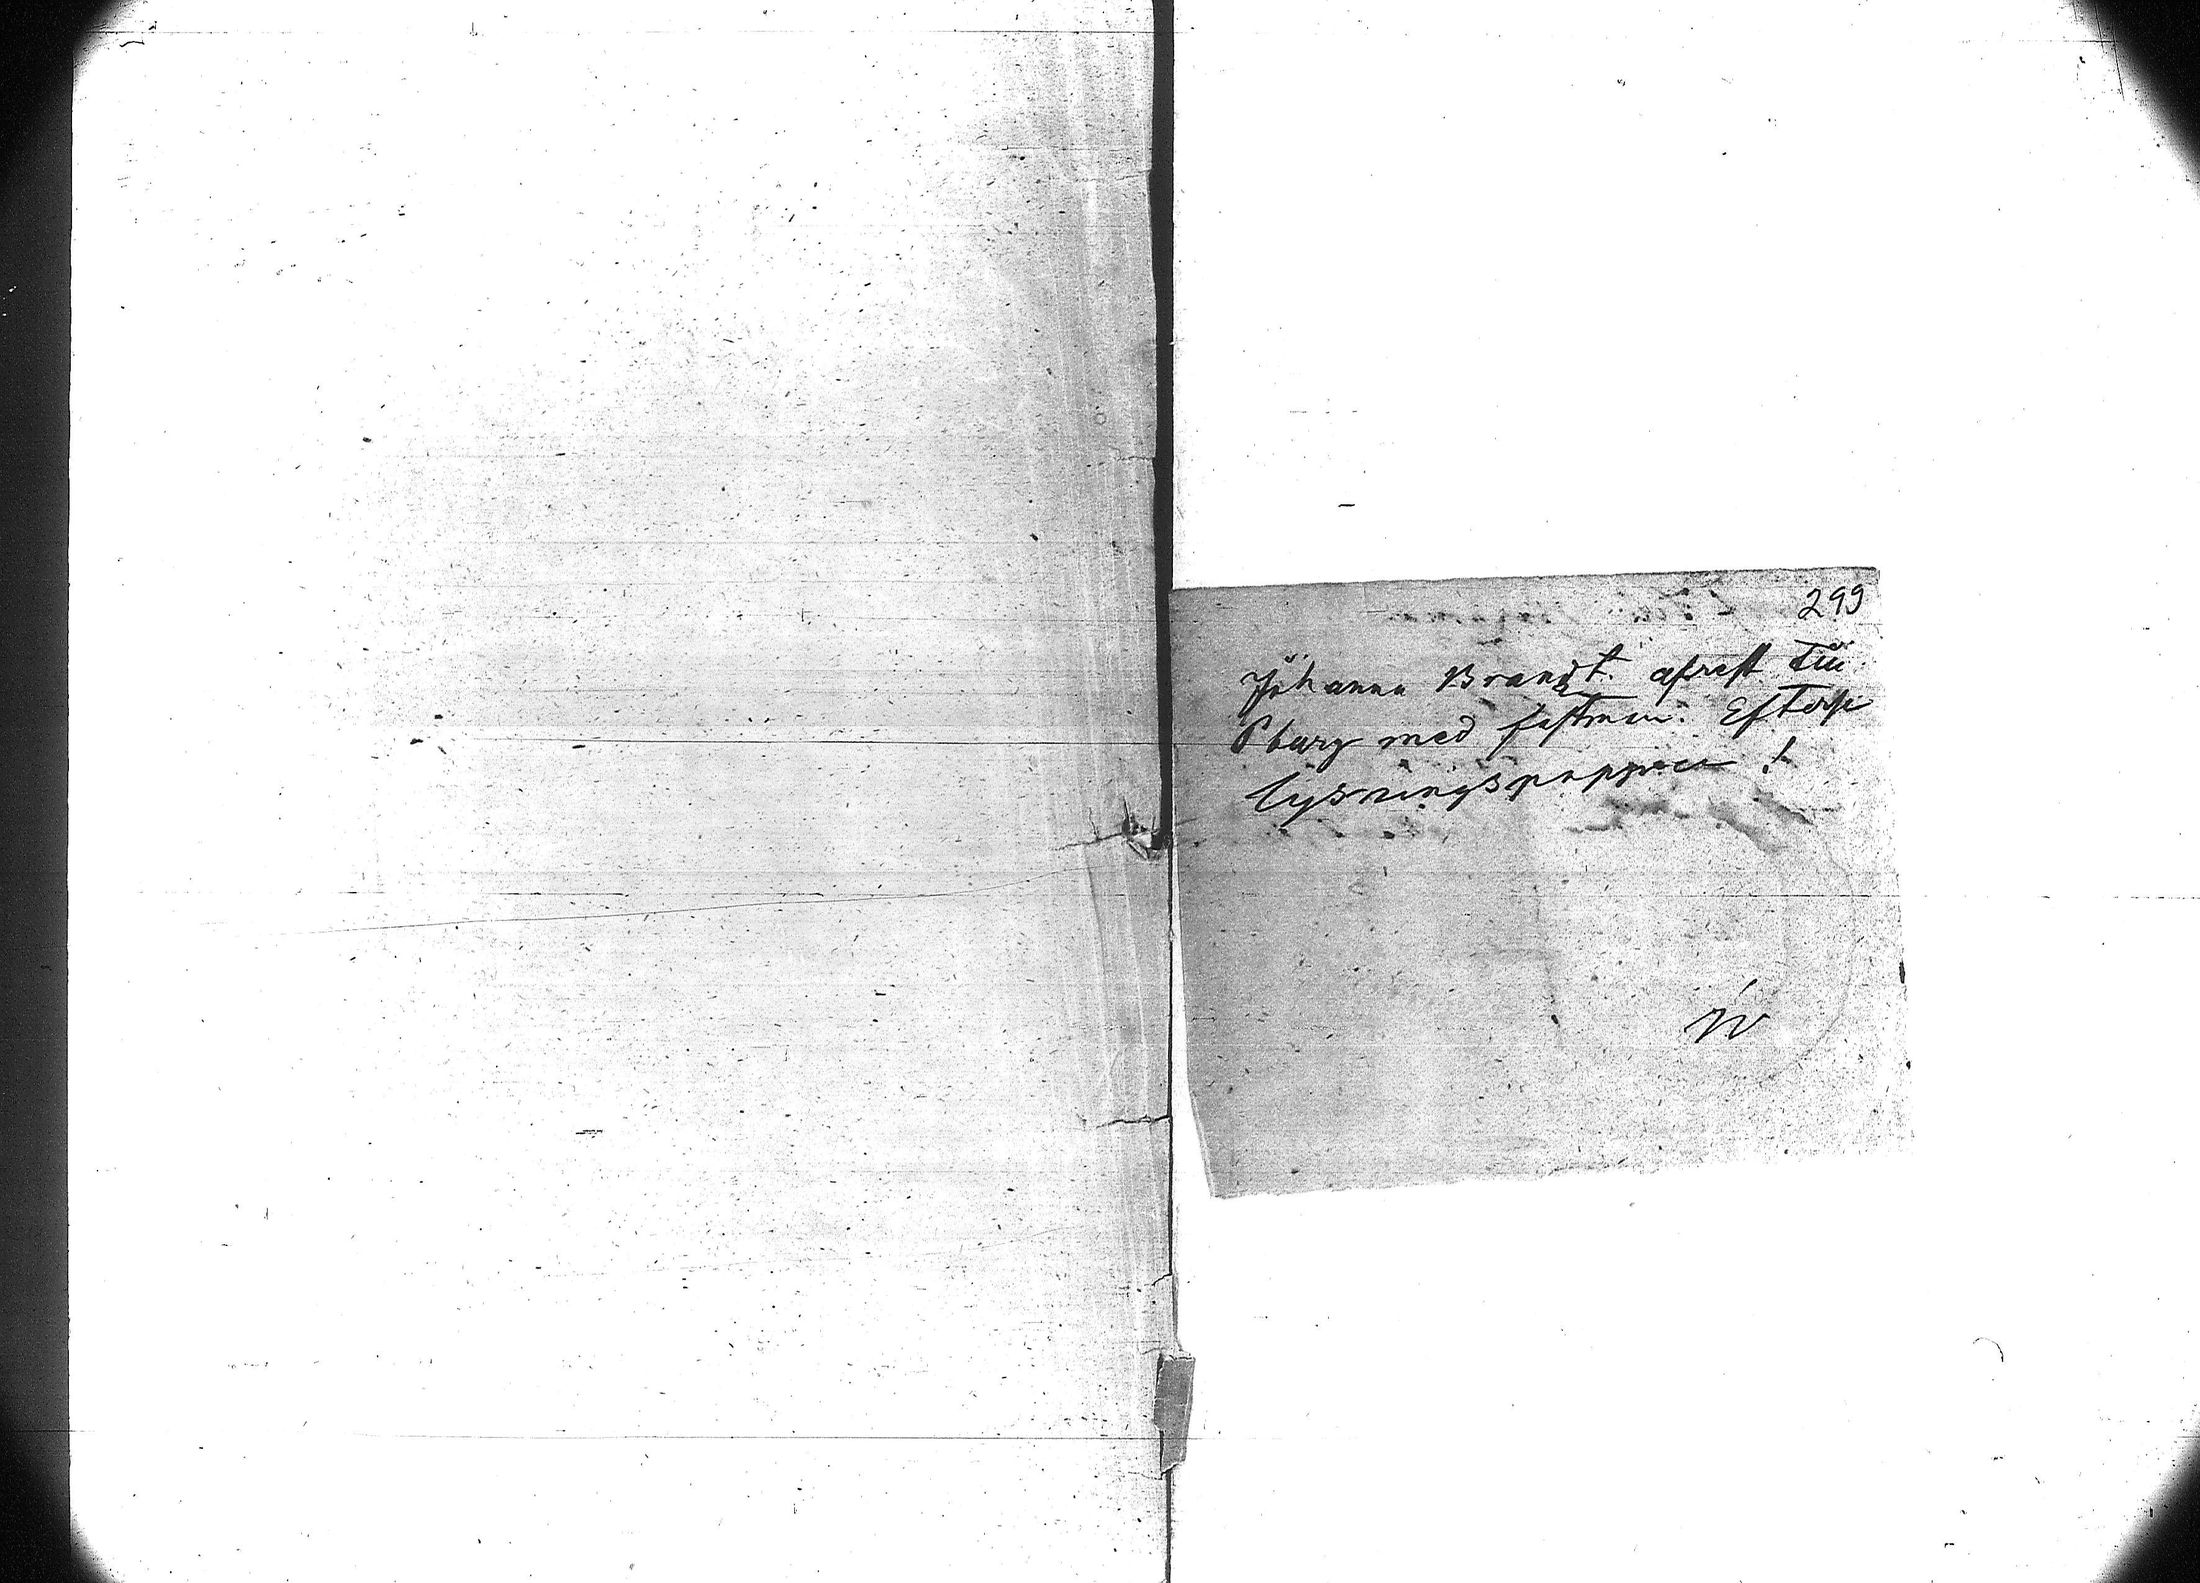 299
Johanna Brandt afrest till
Pburg med fästman. Efterse
lysningspappren!
W